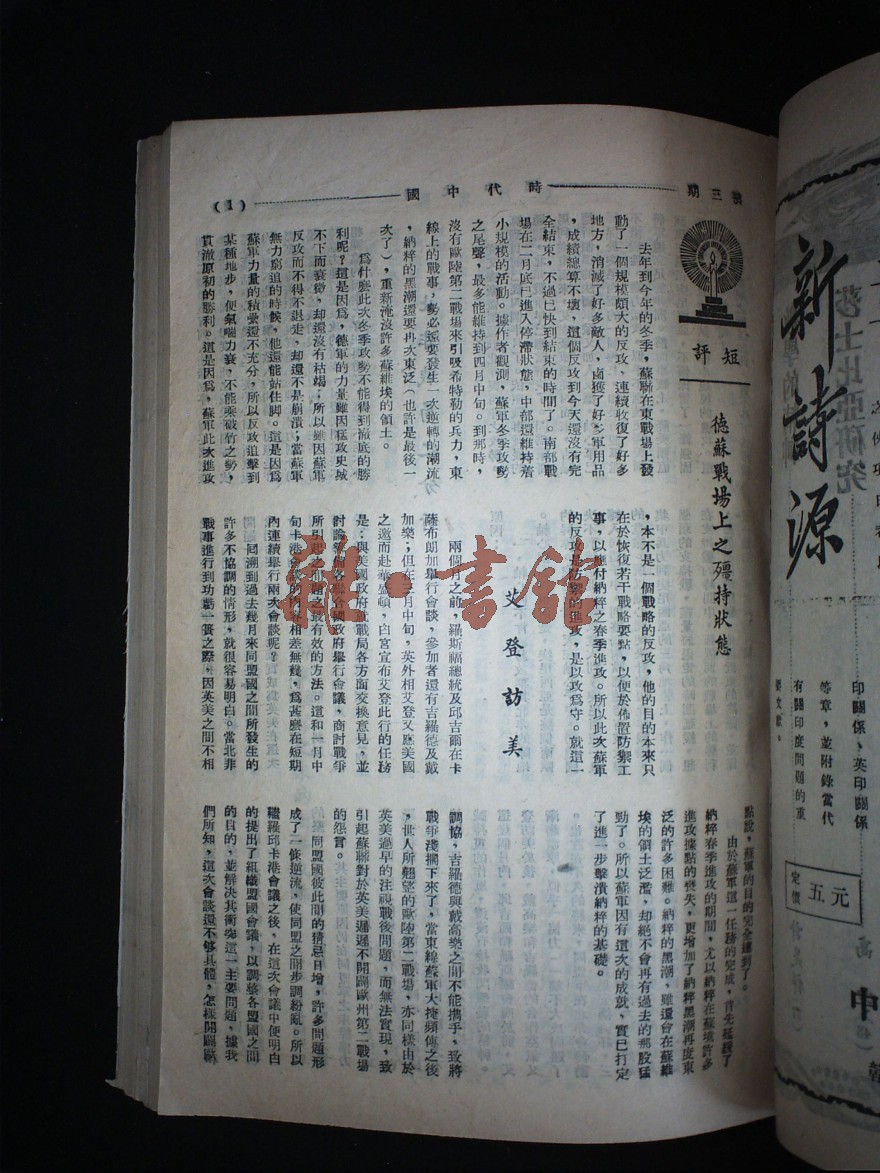 第三期
時代中國
(1)
短評
德蘇戰場上之殭持狀態
去年到今年的冬季,蘇聯在東戰場上發
動了一個規模頗大的反攻、連續收復了好多
地方,消滅了好多敵人,鹵獲了好多軍用品
,成績總算不壞,這個反攻到今天還沒有完
全結束,不過已快到結束的時間了。南部戰
場在二月底已進入停滯狀態,中部還維持着
小規模的活動。據作者觀測,蘇軍冬季攻勢
之尾聲,最多能維持到四月中旬。到那時,
沒有歐陸第二戰場來引吸希特勒的兵力,東
線上的戰事,勢必還要發生一次逆轉的潮流
,納粹的黑潮還要再次東泛(也許是最後一
次了),重新淹沒許多蘇維埃的領土。
爲什麽此次冬季攻勢不能得到澈底的勝
利呢?這是因爲,德軍的力量雖因猛攻史城
不下而衰微,却還沒有枯竭;所以雖因蘇軍
反攻而不得不退走,却還不是崩潰;當蘇軍
無力窮追的時候,他還能站住脚。這是因爲
蘇軍力量的積彙還不充分,所以反攻追擊到
某種地步,便氣喘力衰,不能乘破竹之勢,
貫澈原初的勝利。這是因爲,蘇軍此次進攻
,本不是一個戰略的反攻,他的目的本來只
在於恢復若干戰略要點,以便於佈置防禦工
事,以應付納粹之春季進攻。所以此次蘇軍
的反攻是防禦的進攻,是以攻爲守。就這一
點說,蘇軍的目的完全達到了。
由於蘇軍這一任務的完成,首先延緩了
納粹春季進攻的期間,尤以納粹在蘇境許多
進攻據點的喪失,更增加了納粹黑潮再度東
泛的許多困難。納粹的黑潮,雖還會在蘇維
埃的領土泛濫,却絕不會再有過去的那股猛
動了。所以蘇軍因有這次的成就,實已打定
了進一步擊潰納粹的基礎。
艾登訪美
兩個月之前,羅斯福總統及邱吉爾在卡
薩布朗加舉行會談,參加者還有吉羅德及戴
加樂;但在三月中旬,英外相艾登又應美國
之邀而赴華盛頓,白宮宣布艾登此行的任務
是:與美國政府就戰局各方面交換意見,並
討論準備各聯合國政府舉行會議,商討戰爭
所引起之問題之最有效的方法。這和一月中
旬卡港會議的內容相差無幾,爲甚麽在短期
內連續舉行兩次會談呢?
囘溯到過去幾月來同盟國之間所發生的
許多不協調的情形,就很容易明白。當北非
戰事進行到功虧一簣之際,因英美之間不相
調協,吉羅德與戴高樂之間不能携手,致將
戰爭淺擱下來了,當東線蘇軍大捷頻傳之後
,世人所翹望的歐陸第二戰場,亦同樣由於
英美過早的注視戰後問題,而無法實現,致
引起蘇聯對於英美遲遲不開闢歐州第二戰場
的怨言。
同盟國彼此間的猜忌日增,許多問題形
成了一條逆流,使同盟之間步調紛亂。所以
繼羅邱卡港會議之後,在這次會議中便明白
的提出了組織盟國會議,以調整各盟國之間
的目的,並解決其衝突這一主要問題,據我
們所知,這次會談還不够具體,怎樣開闢歐
新詩源
莎士比亞研究
印關係、英印關係
等章,並附錄當代
有關印度問題的重
要文獻。
定價
五元
中